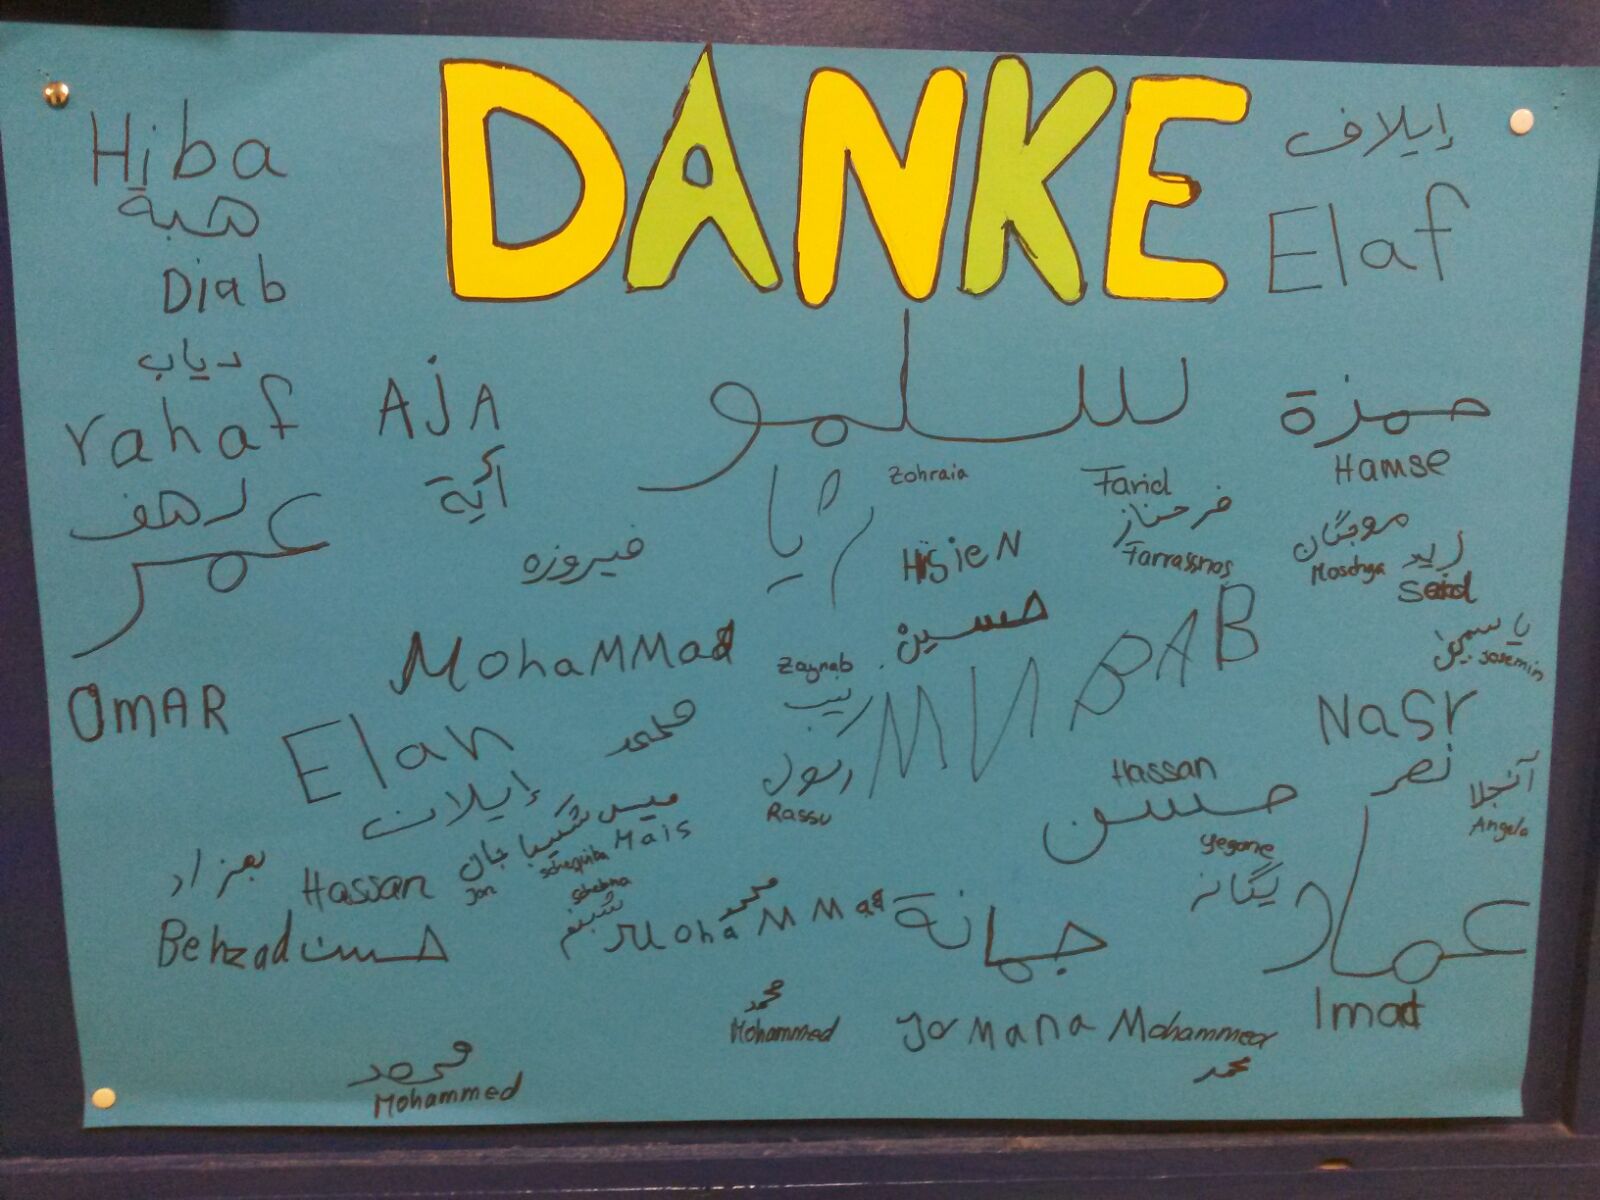 DANKE
Hiba
هبة
Diab
دياب
rahaf
رهف
عمر
OMAR
AJA
آية
إيلاف
Elaf
حمزة
Hamse
Zohraia
Farid
فرحناز
Farrassnas
موجگان
Moschga
Said
ياسمين
Jasemin
فيروزه
Hüsien
حسين
Mohammad
محمد
Zaynab
زينب
رسول
Rassu
Elan
إيلان
ميس
Mais
شكيبا
جان
Jan
شبنم
بهزاد
Behzad
Hassan
Mohammad
محمد
Hassan
حسن
Nasr
نصر
آنجلا
Angela
yegane
یگانه
عماد
Imad
جمانة
Yomana
محمد
Mohammed
Mohammed
محمد
محمد
Mohammed